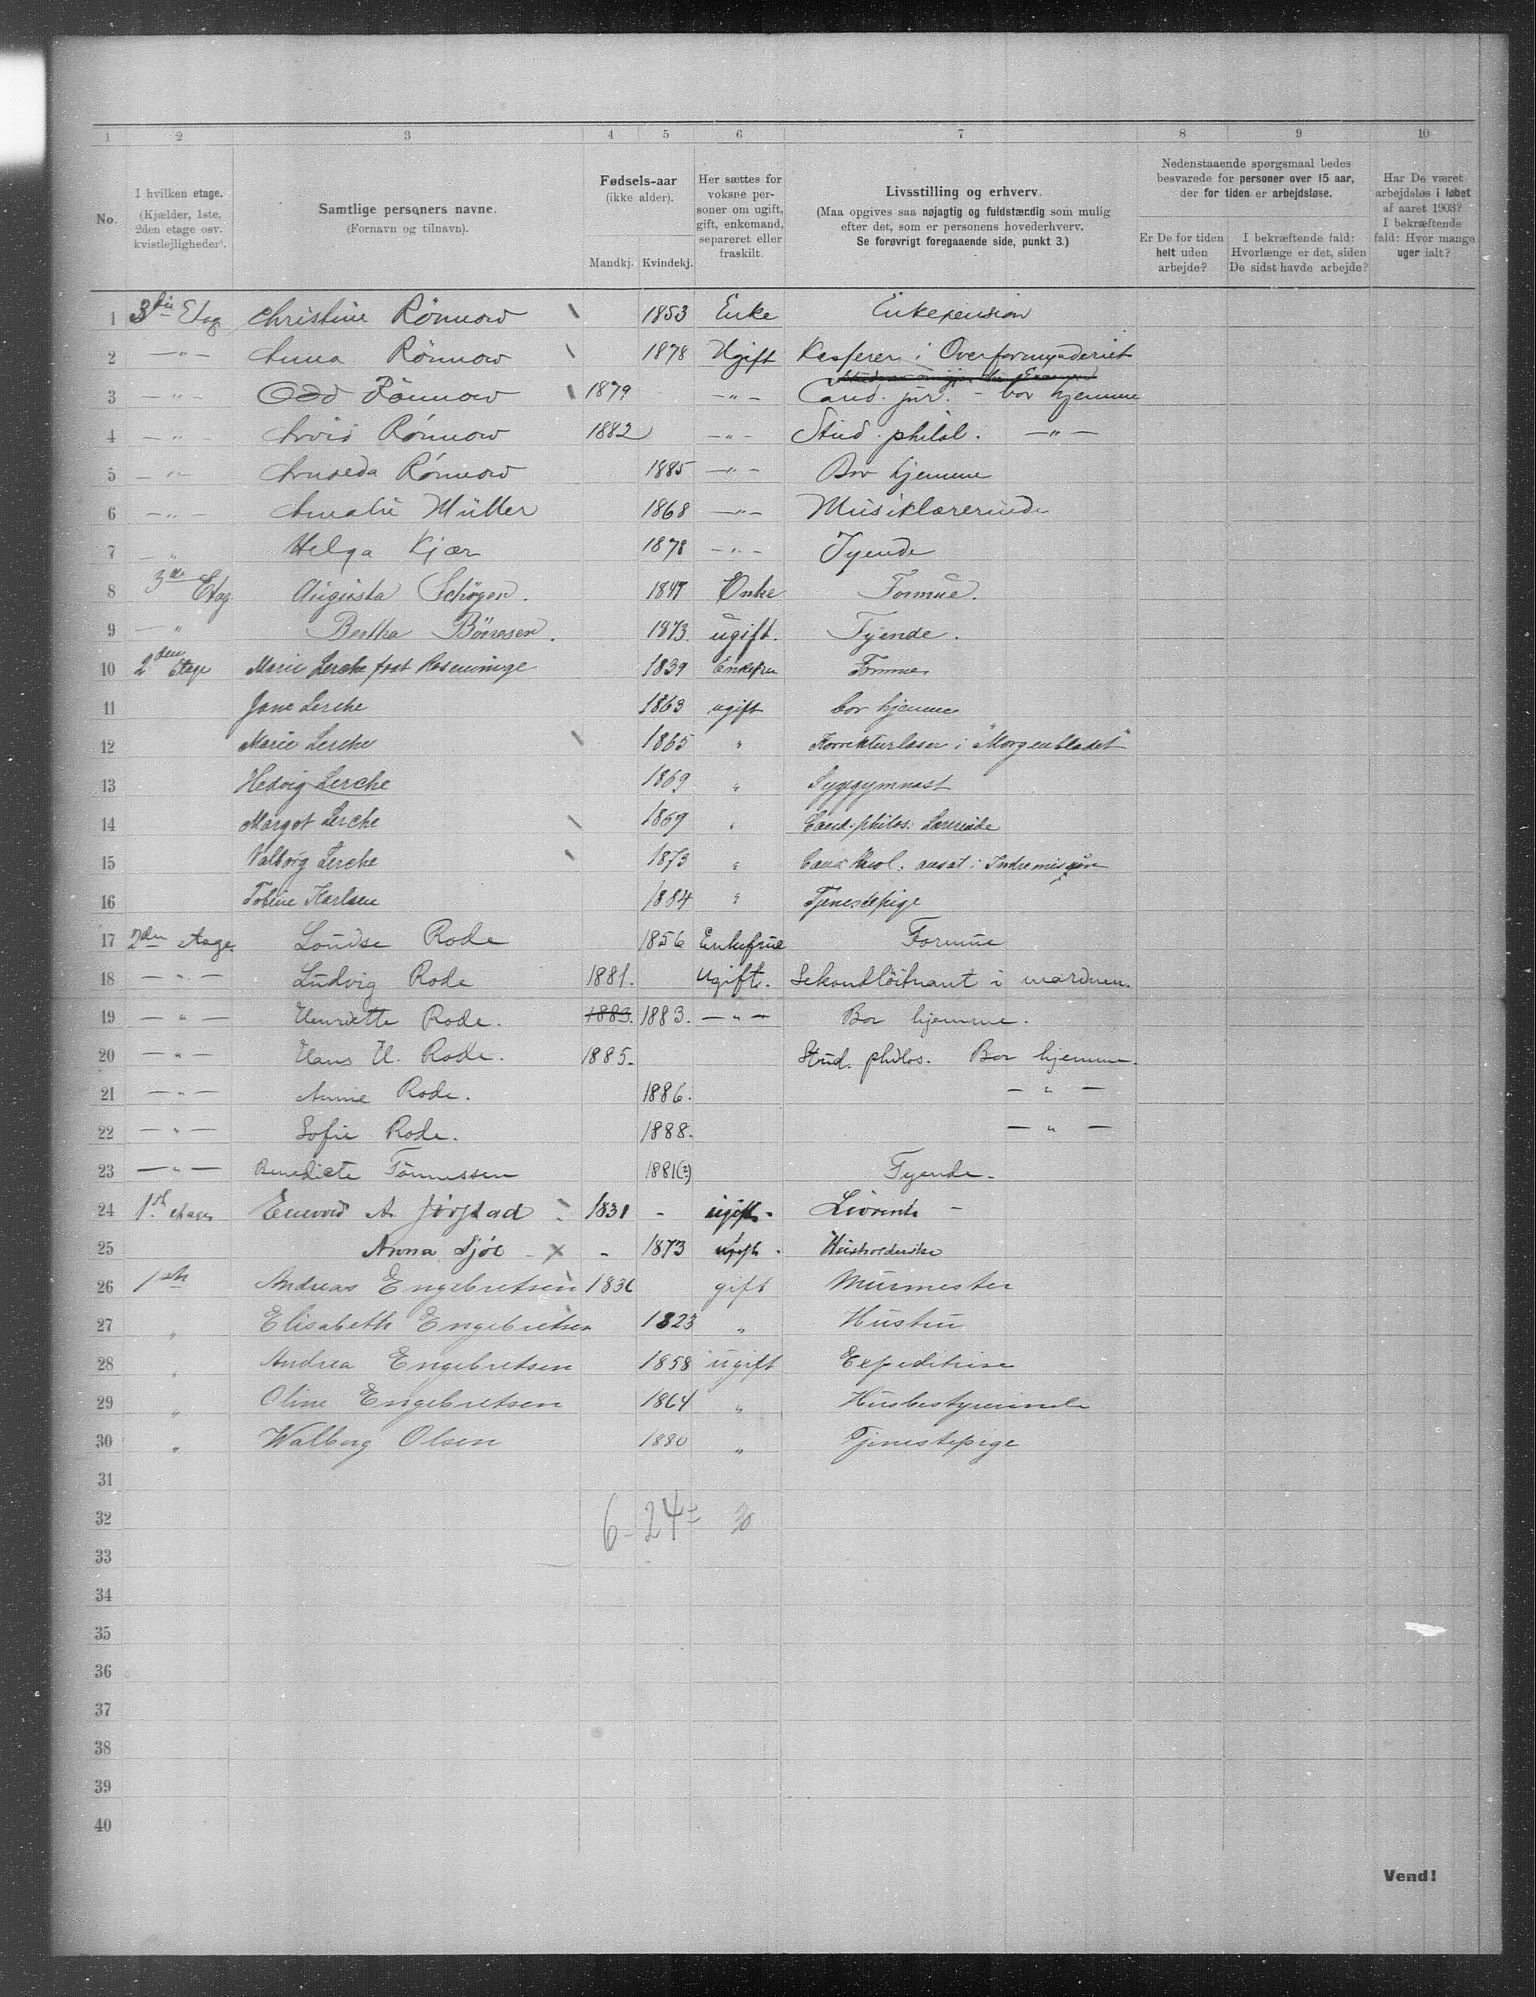 1 2 3 4 5 6 7 8 9 10
No. I hvilken etage. (Kjælder, 1ste, 2den etage osv. kvistlejligheder). Samtlige personers navne. (Fornavn og tilnavn). Fødsels-aar (ikke alder). Mandkj. Kvindekj. Her sættes for voksne personer om ugift, gift, enkemand, separeret eller fraskilt. Livsstilling og erhverv. (Maa opgives saa nøjagtig og fuldstændig som mulig efter det, som er personens hovederhverv. Se forøvrigt foregaaende side, punkt 3.) Nedenstaaende spørgsmaal bedes besvarede for personer over 15 aar, der for tiden er arbejdsløse. Er De for tiden helt uden arbejde? I bekræftende fald: Hvorlænge er det, siden De sidst havde arbejde? Har De været arbejdsløs i løbet af aaret 1903? I bekræftende fald: Hvor mange uger ialt?
1 3die Etag Christine Rönnow 1853 Enke Enkepension
2 —"— Anna Rönnow 1878 Ugift Kasserer i Overformynderiet
3 —"— Odd Rönnow 1879 —"— Cand. jur. - bor hjemme
4 —"— Arvid Rönnow 1882 —"— Stud. philol. —"—
5 —"— Rönnow 1885 —"— Bor hjemme
6 —"— Amalie Müller 1868 —"— Musiklærerinde
7 —"— Helga Kjær 1878 —"— Tyende
8 3de Etag Augusta Schøyen. Enke Formue.
9 " Bertha Börresen. 1873. ugift. Tyende.
10 2den Etage Marie Lerche født 1839 Enkefru Formue.
11 Jane Lerche 1863 ugift bor hjemme
12 Marie Lerche 1865 " Korrekturlæser i "Morgenbladet"
13 Hedvig Lerche 1869 " Sygegymnast
14 Margot Lerche 1869 " Cand. philos. Lærerinde
15 Valborg Lerche 1873 " Cand. theol. ansat i Indremisjon
16 Tobine Karlsen 1884 " Tjenestepige
17 2den etage Louise Rode 1856 Enkefrue Formue
18 —"— Ludvig Rode 1881. Ugift. Sekondlöitnant i marinen.
19 —"— Henriette Rode. 1883. 1883. —"— Bor hjemme.
20 —"— Hans H. Rode. 1885. Stud. philos. Bor hjemme.
21 —"— Annie Rode. 1886. —"—
22 —"— Sofie Rode. 1888. —"—
23 —"— Benedicte Tönnessen 1881(?) Tyende.
24 1st etage A. Jörstad 1831 - ugift. Livrente -
25 Anna Sjöe - x - 1873 ugift. Husholderske
26 1ste Andreas Engebretsen 1836 gift Murmester
27 " Elisabeth Engebretsen 1823 " Hustru
28 " Andrea Engebretsen 1858 ugift Expeditrise
29 " Oline Engebretsen 1864 " Husbestyrerinde
30 " Walborg Olsen 1880 " Tjenestepige
31
32 6 - 24 = 30
33
34
35
36
37
38
39
40
Vend!